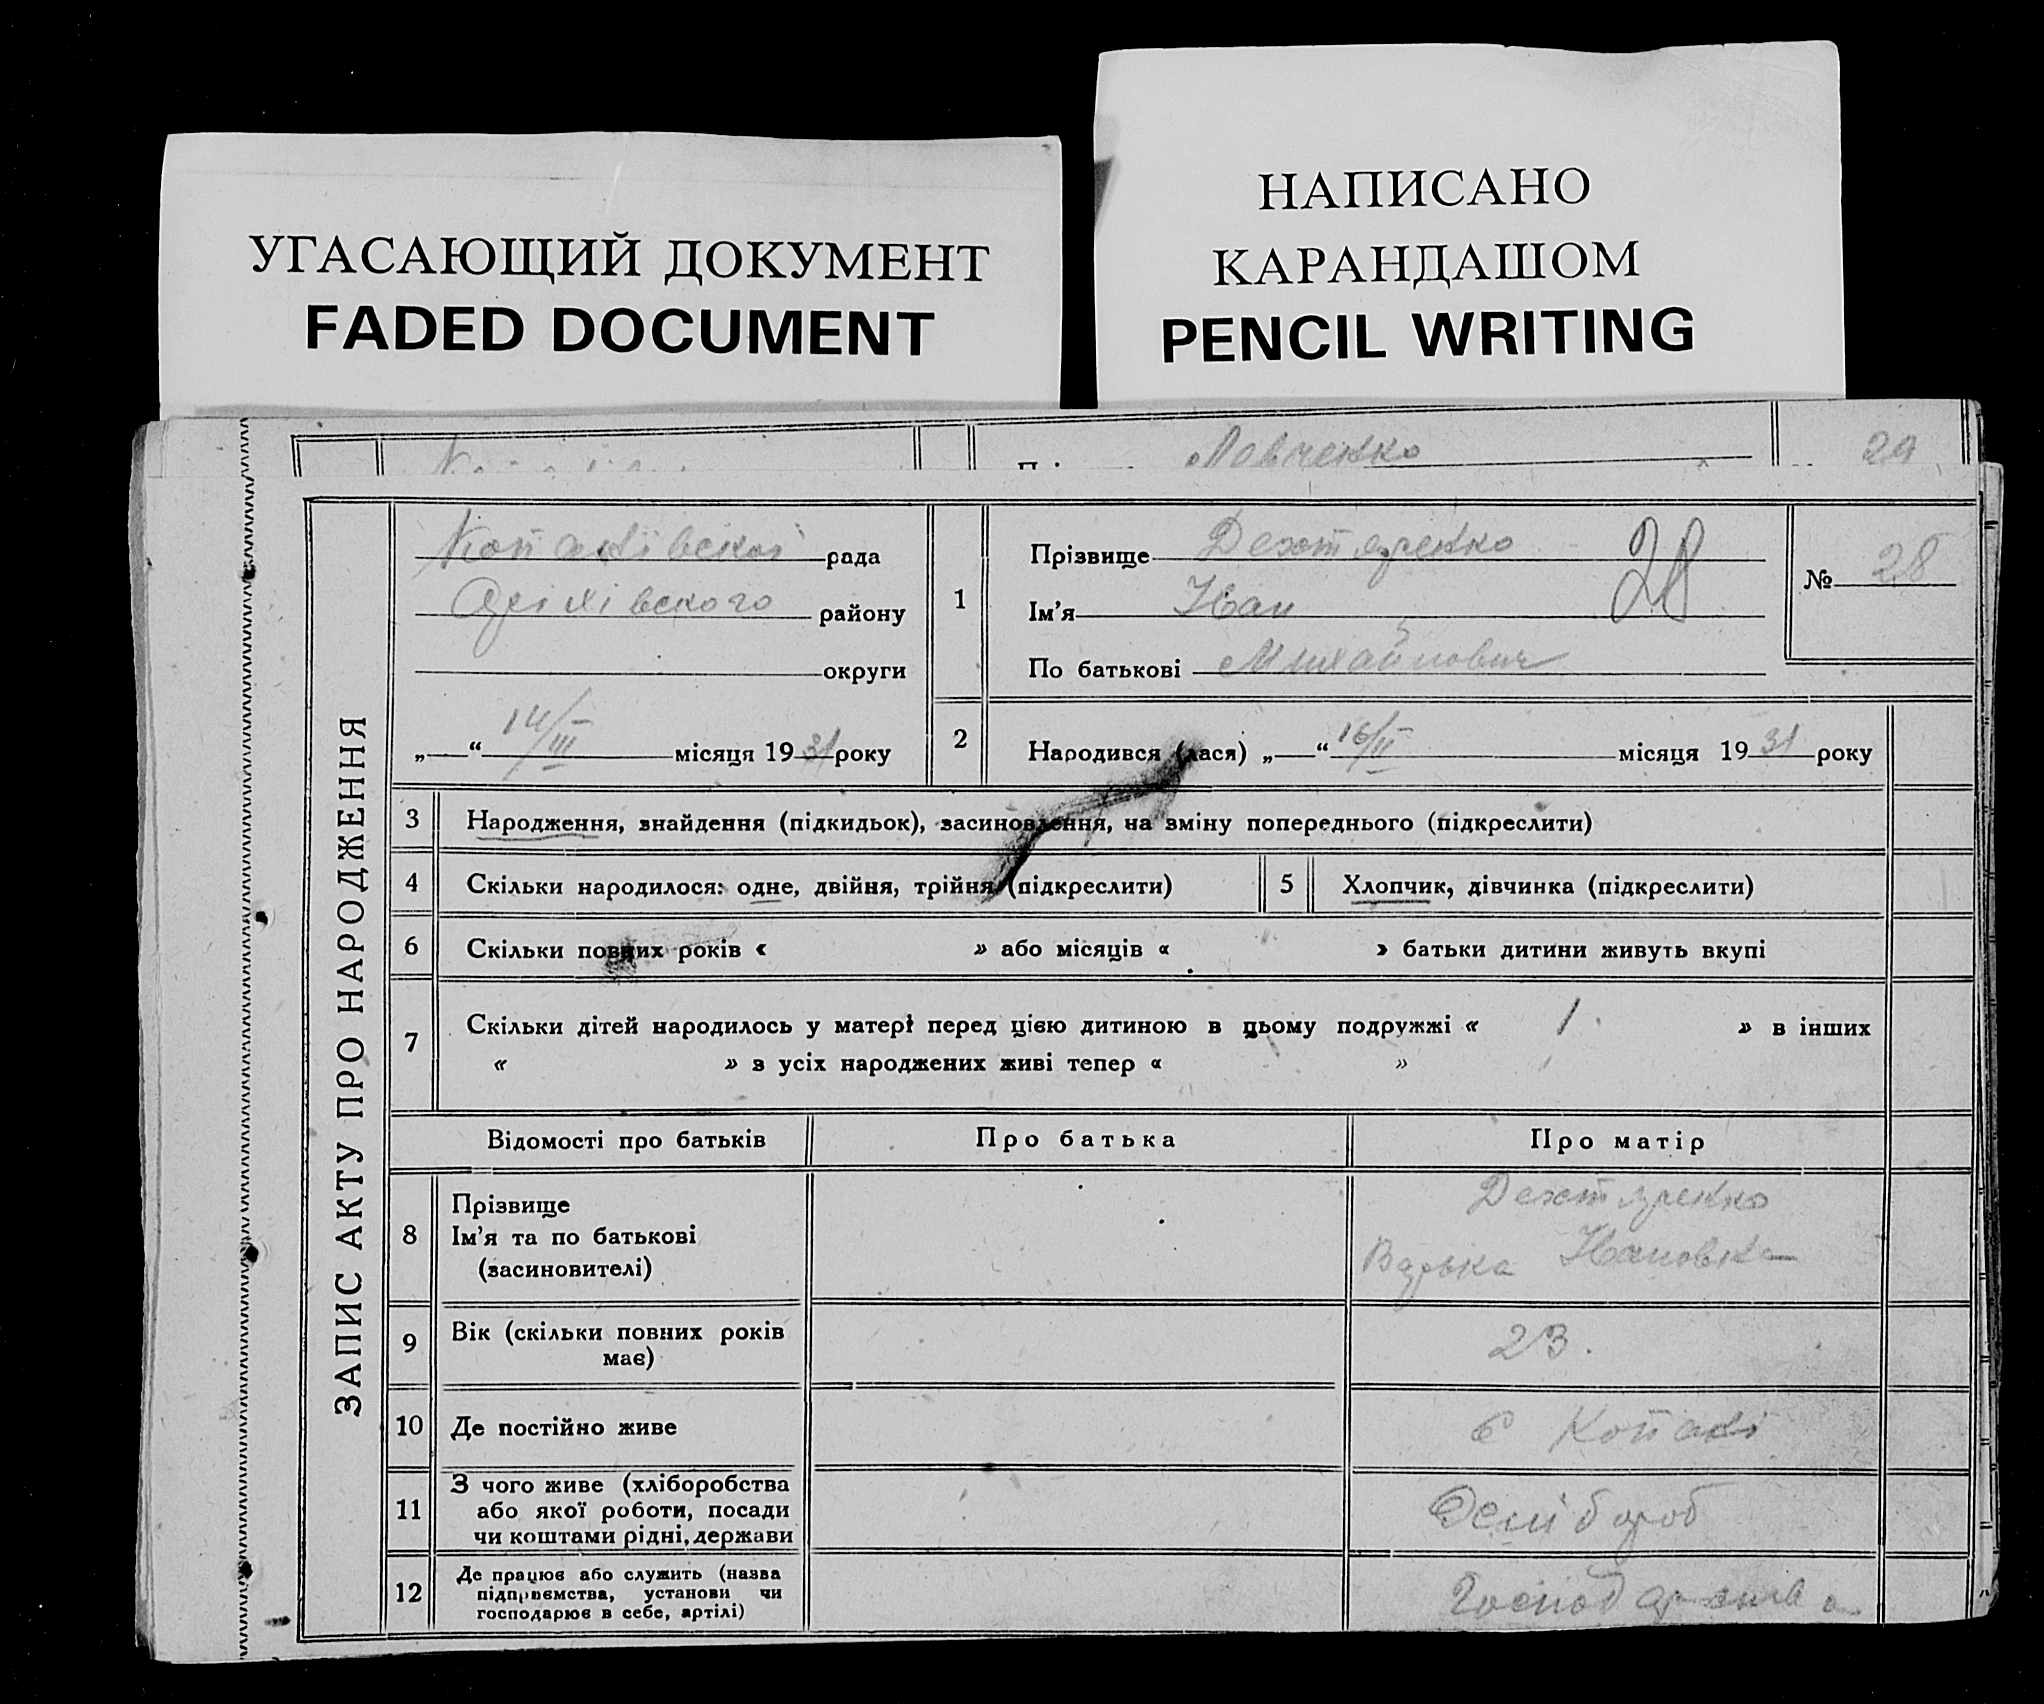 УГАСАЮЩИЙ ДОКУМЕНТ
FADED DOCUMENT
НАПИСАНО
КАРАНДАШОМ
PENCIL WRITING
Левченко
29
ЗАПИС АКТУ ПРО НАРОДЖЕННЯ
Копанівської рада
Оріхівського району
округи
„—“ 14/III місяця 1931 року
1
Прізвище Дехтяренко
Ім’я Иван
По батькові Михайлович
28
№ 28
2
Народився (лася) „—“ 16/II місяця 1931 року
3 Народження, знайдення (підкидьок), засиновлення, на зміну попереднього (підкреслити)
4 Скільки народилося: одне, двійня, трійня (підкреслити)
5 Хлопчик, дівчинка (підкреслити)
6 Скільки повних років « » або місяців « » батьки дитини живуть вкупі
7 Скільки дітей народилось у матері перед цією дитиною в цьому подружжі « 1. » в інших
« » з усіх народжених живі тепер « »
Відомості про батьків Про батька Про матір
8 Прізвище
Ім’я та по батькові
(засиновителі)
Дехтяренко
Варька Ивановна
9 Вік (скільки повних років
має)
23.
10 Де постійно живе
с Копані
11 З чого живе (хліборобства
або якої роботи, посади
чи коштами рідні, держави
12 Де працює або служить (назва
підприємства, установи чи
господарює в себе, артілі)